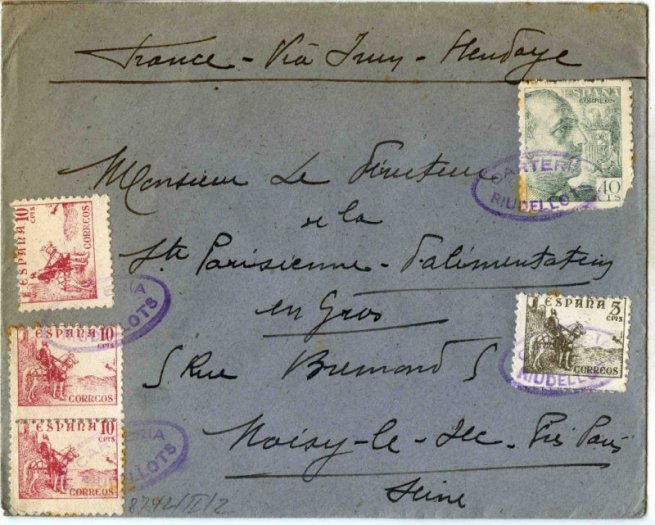 France - Via Irun - Hendaye
ESPAÑA
CORREOS
40
CTS
CARTERIA
RIUDELLO
Monsieur Le Directeur
de la
Ste Parisienne - d'alimentation
en Gros
5 Rue Bremond 5
Noisy-le-Sec - Près Paris
Seine
ESPAÑA 10
CTS
CORREOS
ERIA
LLOTS
ESPAÑA 10
CTS
CORREOS
ESPAÑA 10
CTS
CORREOS
CARTERIA
RIUDELLOTS
ESPAÑA 5
CTS
CORREOS
RIUDELLO
8794/II/2